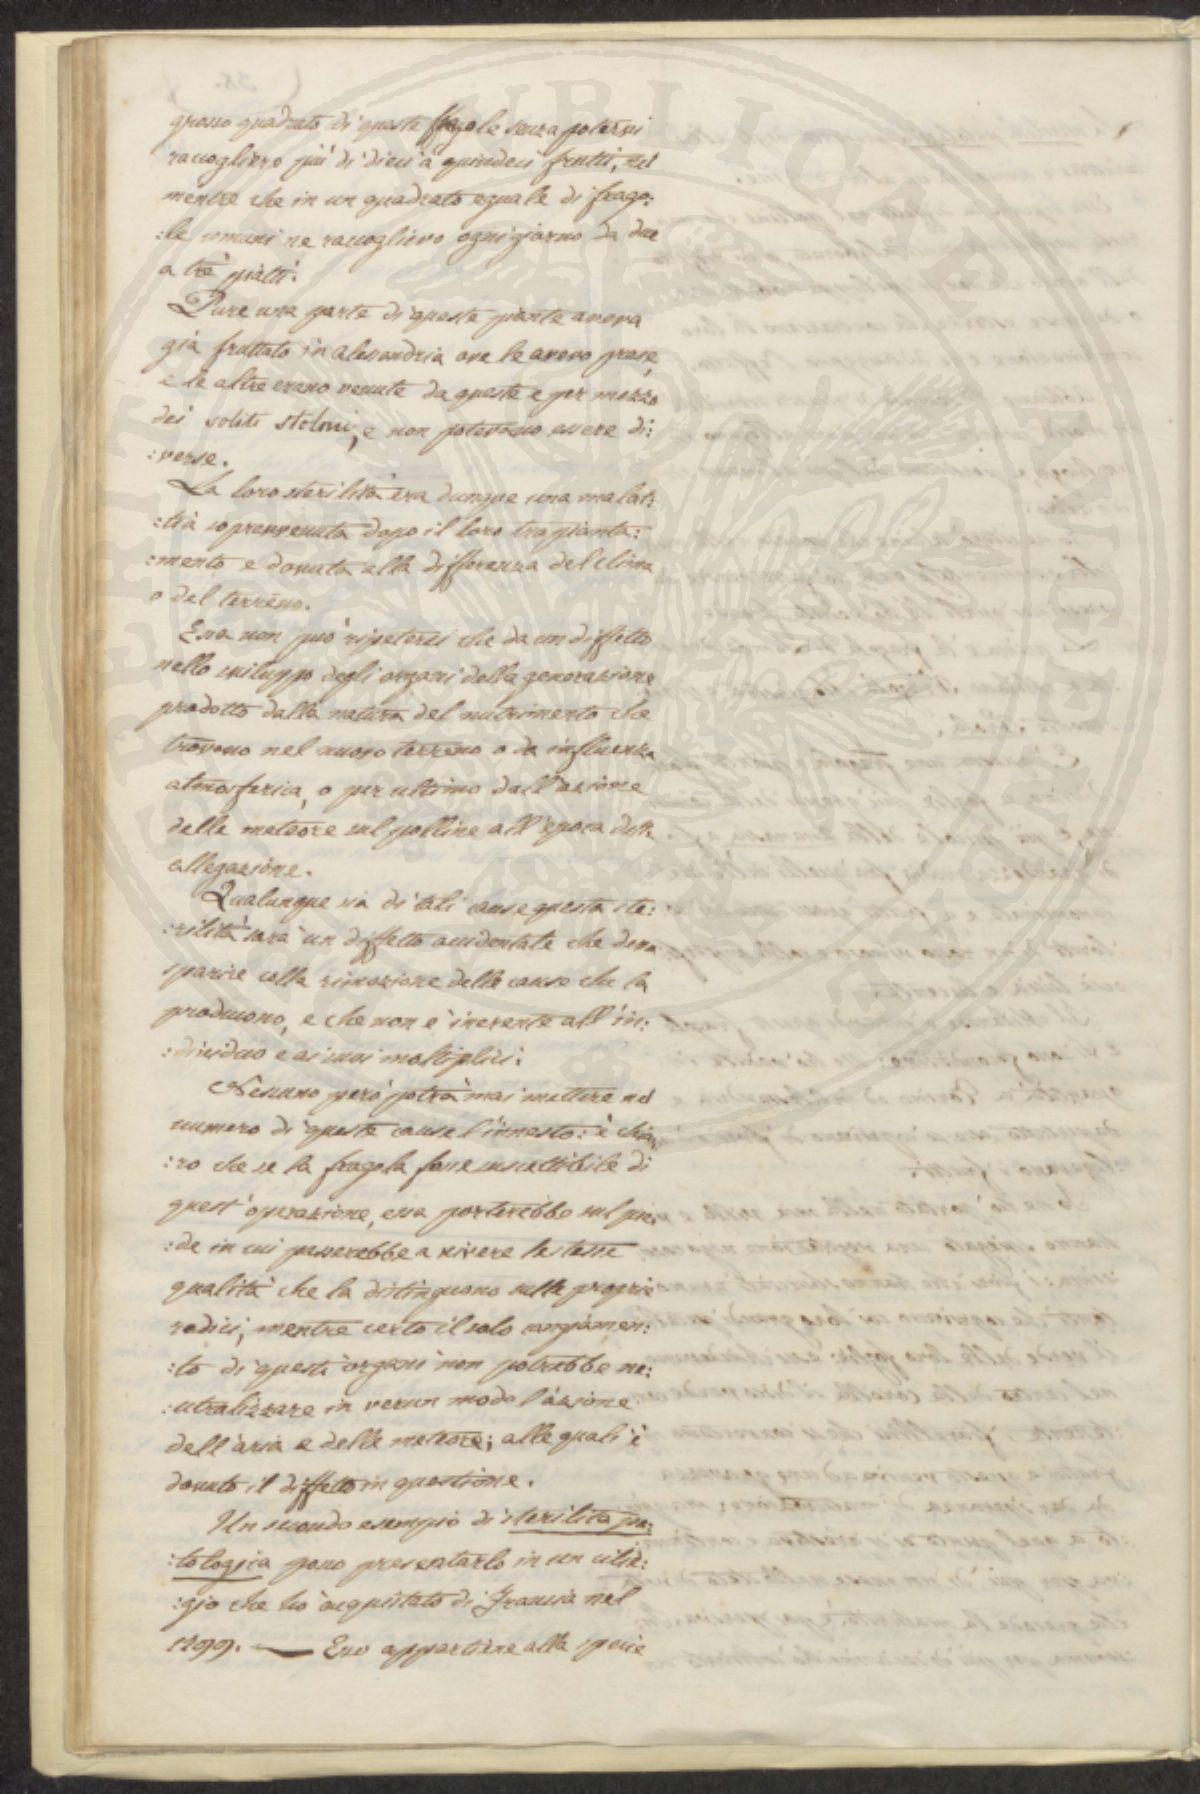 grosso quadrato di queste fragole senza potervi
raccogliere più di dieci a quindeci frutti, nel
mentre che in un quadrato eguale di frago:
:le comuni ne raccoglievo ogni giorno da due
a trè piatti.
Pure una parte di queste piante aveva
già fruttato in alessandria ove le avevo prese,
e le altre erano venute da queste e per mezzo
dei soliti stoloni, e non potevano essere di:
:verse.
La loro sterilità era dunque una malat:
:tia sopravvenuta dopo il loro trapianta:
:mento e dovuta alla differenza del clima
o del terreno.
Essa non può ripetersi che da un diffetto
nello sviluppo degli organi della generazione
prodotto dalla natura del nutrimento che
trovono nel nuovo terreno o da influenza
atmosferica, o per ultimo dall'azione
delle meteore sul polline all'epoca della
allegazione.
Qualunque sia di tali cause questa ste:
:rilità sarà un diffetto accidentale che deve
sparire colla rimozione delle cause che la
producono, e che non è inerente all'in:
:dividuo e ai suoi moltiplici.
Nessuno però potrà mai mettere nel
numero di queste cause l'innesto: è chia:
:ro che se la fragola fosse suscettibile di
quest'operazione, essa porterebbe sul pie:
:de in cui passerebbe a vivere le stesse
qualità che la distinguono sulle proprie
radici, mentre certo il solo cangiamen:
:to di questi organi non potrebbe ne:
:utralizzare in verun modo l'azione
dell'aria e delle meteore; alle quali è
dovuto il diffetto in questione.
Un secondo esempio di sterilità pa:
:tologica posso presentarlo in un cilie:
:gio che hò acquistato di Francia nel
1799. — Esso appartiene alla specie